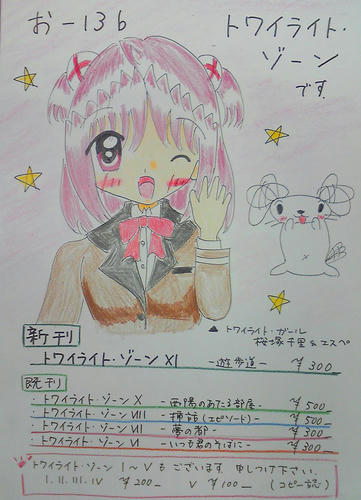 おー136
トワイライト・
ゾーン
です
▲トワイライト・ガール
桜塚千里&エスペ
新刊
トワイライト・ゾーン XI -遊歩道- ¥300
既刊
・トワイライト・ゾーン X -西陽のあたる部屋- ¥500
・トワイライト・ゾーン VIII -挿話(エピソード)- ¥500
・トワイライト・ゾーン VII -夢の都- ¥300
・トワイライト・ゾーン VI -いつも君のそばに- ¥300
トワイライト・ゾーン I~Vもございます 申しつけ下さい。
I. II. III. IV ¥200- V ¥100- (コピー誌)